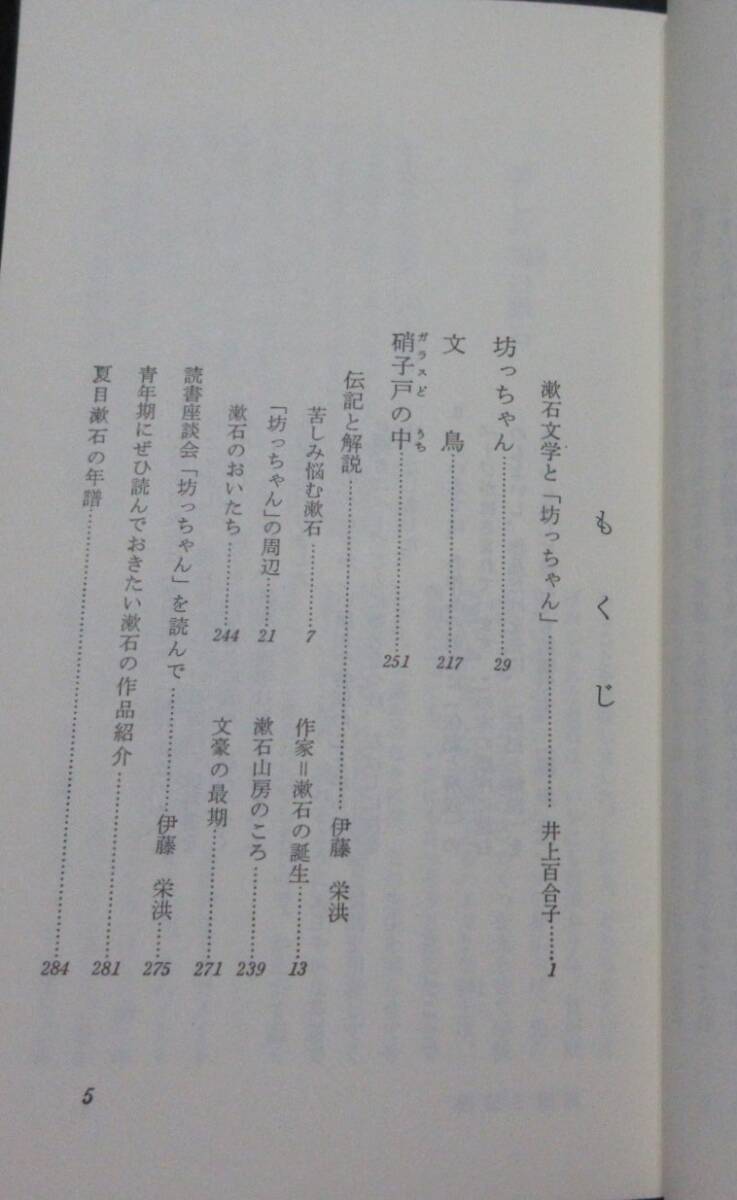 もくじ
漱石文学と「坊っちゃん」……井上百合子……1
坊っちゃん……29
文鳥……217
硝子戸の中……251
ガラスど うち
伝記と解説……伊藤 栄洪
苦しみ悩む漱石……7
作家＝漱石の誕生……13
「坊っちゃん」の周辺……21
漱石山房のころ……239
漱石のおいたち……244
文豪の最期……271
読書座談会「坊っちゃん」を読んで……伊藤 栄洪……275
青年期にぜひ読んでおきたい漱石の作品紹介……281
夏目漱石の年譜……284
5